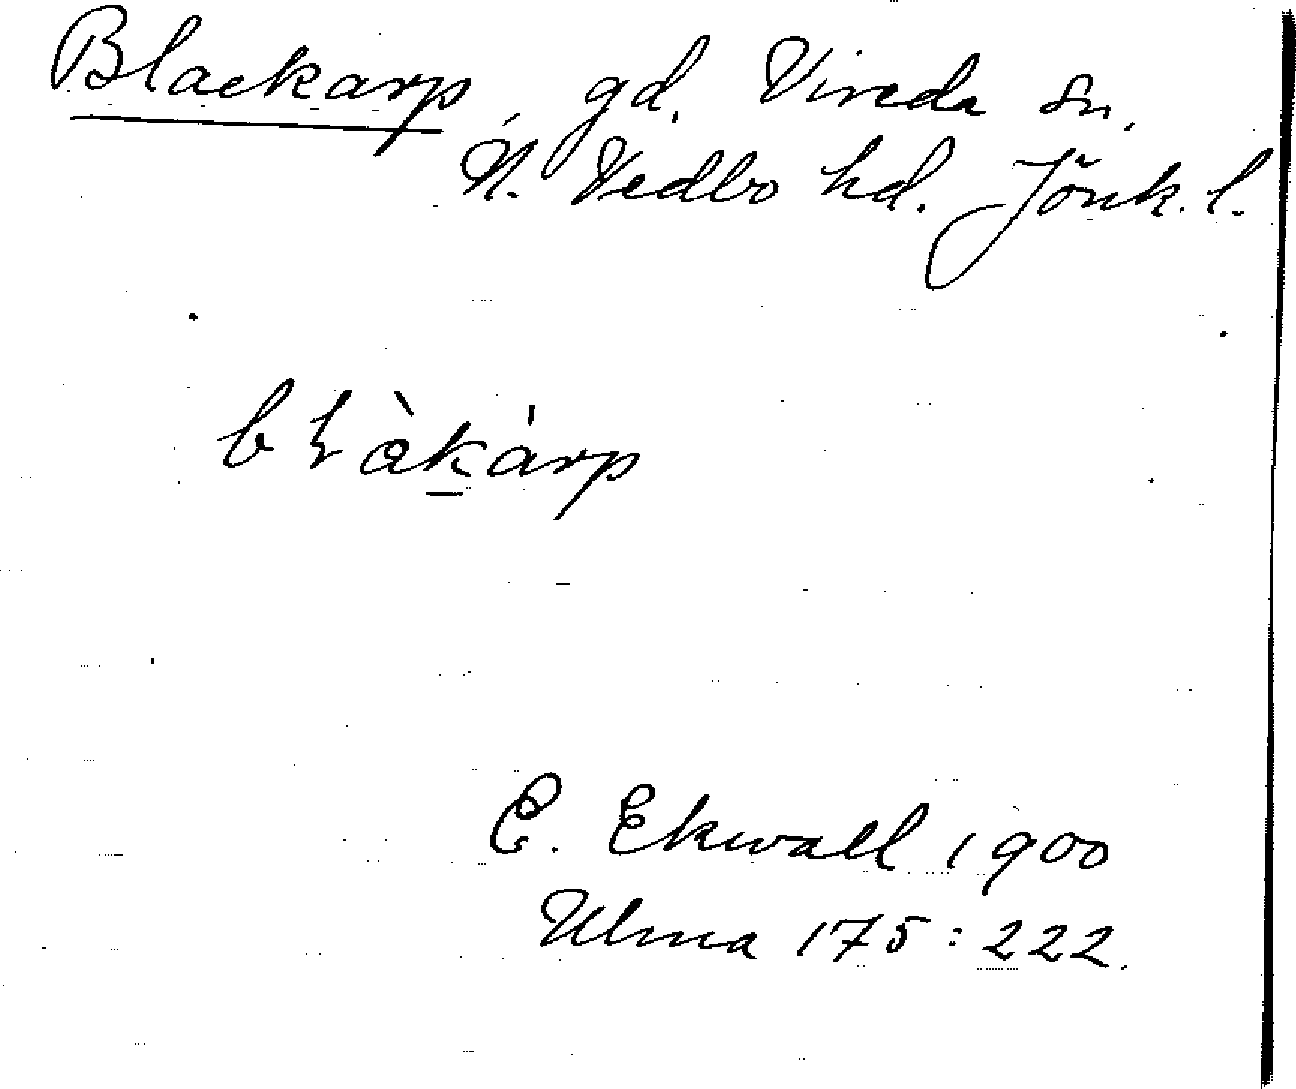 Blackarp, gd. Vireda sn.
N. Vedbo hd. Jönk. l.
bɬàk̠árp
E. Ekwall 1900
Ulma 175:222.